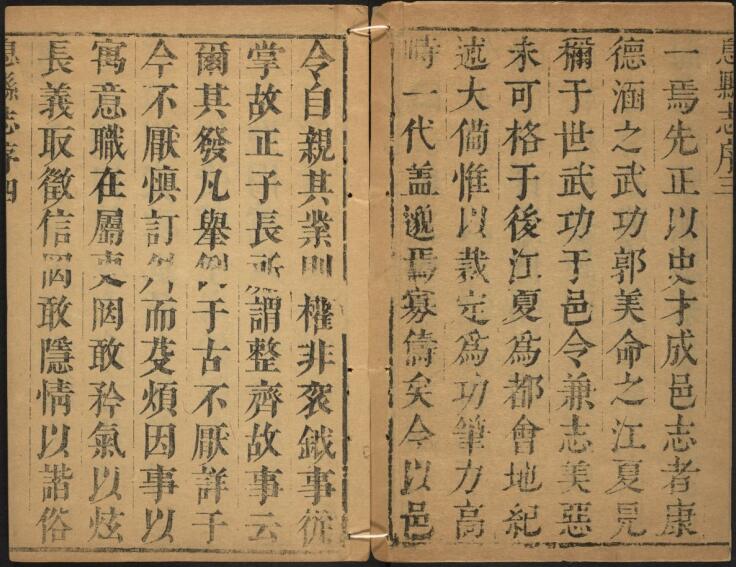 息縣志序三
一焉先正以史才成邑志者康
德涵之武功郭美命之江夏見
稱于世武功于邑令兼志美惡
未可格于後江夏為都會地紀
述大備惟以裁定為功筆力高
時一代蓋邈焉寡儔矣今以邑
令自親其業則權非袞鉞事從
掌故正子長所謂整齊故事云
爾其發凡舉例于古不厭詳于
今不厭慎訂외而芟煩因事以
寓意職在屬吏罔敢矜氣以炫
長義取徵信罔敢隱情以諧俗
息縣志序四